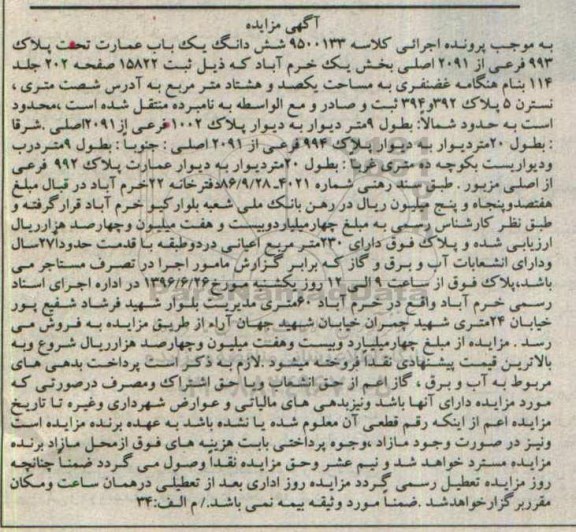 آگهی مزایده
به موجب پرونده اجرائی کلاسه ۹۵۰۰۱۳۳ شش دانگ یک باب عمارت تحت پلاک
۹۹۳ فرعی از ۲۰۹۱ اصلی بخش یک خرم آباد که ذیل ثبت ۱۵۸۲۲ صفحه ۲۰۲ جلد
۱۱۴ بنام هنگامه غضنفری به مساحت یکصد و هشتاد متر مربع به آدرس شصت متری ،
نسترن ۵ پلاک ۳۹۲و۳۹۴ ثبت و صادر و مع الواسطه به نامبرده منتقل شده است ،محدود
است به حدود شمالا: بطول ۹متر دیوار به دیوار پلاک ۱۰۰۲فرعی از۲۰۹۱اصلی .شرقا
: بطول ۲۰متردیوار به دیوار پلاک ۹۹۴ فرعی از ۲۰۹۱ اصلی : جنوبا : بطول ۹متردرب
ودیواریست بکوچه ده متری غربا : بطول ۲۰متردیوار به دیوار عمارت پلاک ۹۹۲ فرعی
از اصلی مزبور . طبق سند رهنی شماره ۴۰۲۱-۸۶/۹/۲۸دفترخانه ۲۲خرم آباد در قبال مبلغ
هفتصدوپنجاه و پنج میلیون ریال در رهن بانک ملی شعبه بلوارکیو خرم آباد قرارگرفته و
طبق نظر کارشناس رسمی به مبلغ چهارمیلیاردوبیست و هفت میلیون وچهارصد هزارریال
ارزیابی شده و پلاک فوق دارای ۲۳۰متر مربع اعیانی دردوطبقه با قدمت حدودا۲۷سال
ودارای انشعابات آب و برق و گاز که برابر گزارش مامور اجرا در تصرف مستاجر می
باشد،پلاک فوق از ساعت ۹ الی ۱۲ روز یکشنبه مورخ۱۳۹۶/۶/۲۶ در اداره اجرای اسناد
رسمی خرم آباد واقع در خرم آباد ۶۰متری مدیریت بلوار شهید فرشاد شفیع پور
خیابان ۲۴متری شهید چمران خیابان شهید جهان آراء از طریق مزایده به فروش می
رسد . مزایده از مبلغ چهارمیلیارد وبیست وهفت میلیون وچهارصد هزارریال شروع وبه
بالاترین قیمت پیشنهادی نقدا فروخته میشود .لازم به ذکر است پرداخت بدهی های
مربوط به آب و برق ، گاز اعم از حق انشعاب ویا حق اشتراک ومصرف درصورتی که
مورد مزایده دارای آنها باشد ونیزبدهی های مالیاتی و عوارض شهرداری وغیره تا تاریخ
مزایده اعم از اینکه رقم قطعی آن معلوم شده یا نشده باشد به عهده برنده مزایده است
ونیز در صورت وجود مازاد ،وجوه پرداختی بابت هزینه های فوق ازمحل مازاد برنده
مزایده مسترد خواهد شد و نیم عشر وحق مزایده نقدا وصول می گردد ضمنا چنانچه
روز مزایده تعطیل رسمی گردد مزایده روز اداری بعد از تعطیلی درهمان ساعت ومکان
مقرربرگزارخواهدشد .ضمنا مورد وثیقه بیمه نمی باشد./م الف:۳۴